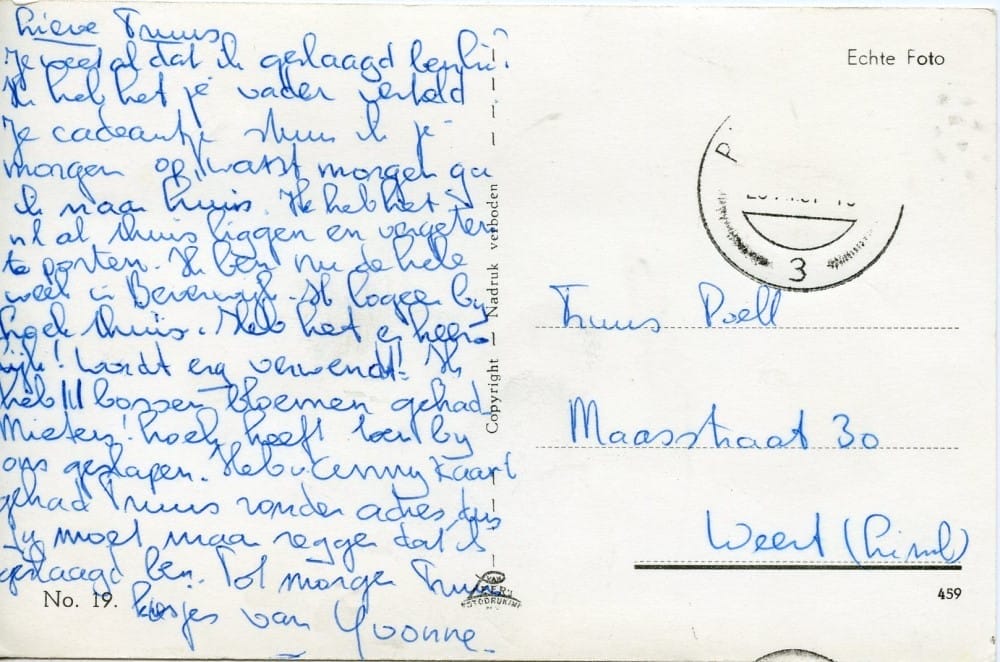 Lieve Truus,
Je weet al dat ik geslaagd ben hè?
Ik heb het je vader verteld
Je cadeautje stuur ik je
morgen op, want morgen ga
ik naar huis. Ik heb het
nl al thuis liggen en vergeten
te posten. Ik ben nu de hele
week in Beverwijk. Ik logeer by
thuis. Heb het er heer-
lijk! Wordt erg verwend! Ik
heb 11 bossen bloemen gehad
Mieters! heeft toen by
ons geslapen. Heb v. kaart
gehad Truus zonder adres, dus
Jy moet maar zeggen dat ik
geslaagd ben. Tot morgen Truus
kusjes van Yvonne.
No. 19.
Copyright — Nadruk verboden
FOTODRUKKERIJ
Echte Foto
P.
3
Truus Poell
Maasstraat 30
Weert (Limb)
459